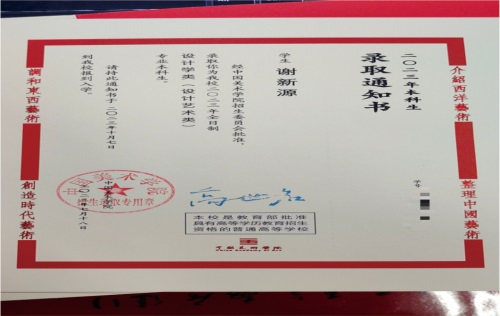 二〇二三年本科生
录取通知书
学生 谢新源
经中国美术学院招生委员会批准，
录取你为我校二〇二三年全日制
设计学类（设计艺术类）
专业本科生。
请持此通知书于二〇二三年十月七日
到我校报到入学。
中国美术学院
二〇二三年七月十八日
招生录取专用章
学号
本校是教育部批准
具有高等学历教育招生
资格的普通高等学校
中国美术学院
China Academy of Art
介紹西洋藝術
整理中國藝術
調和東西藝術
創造時代藝術